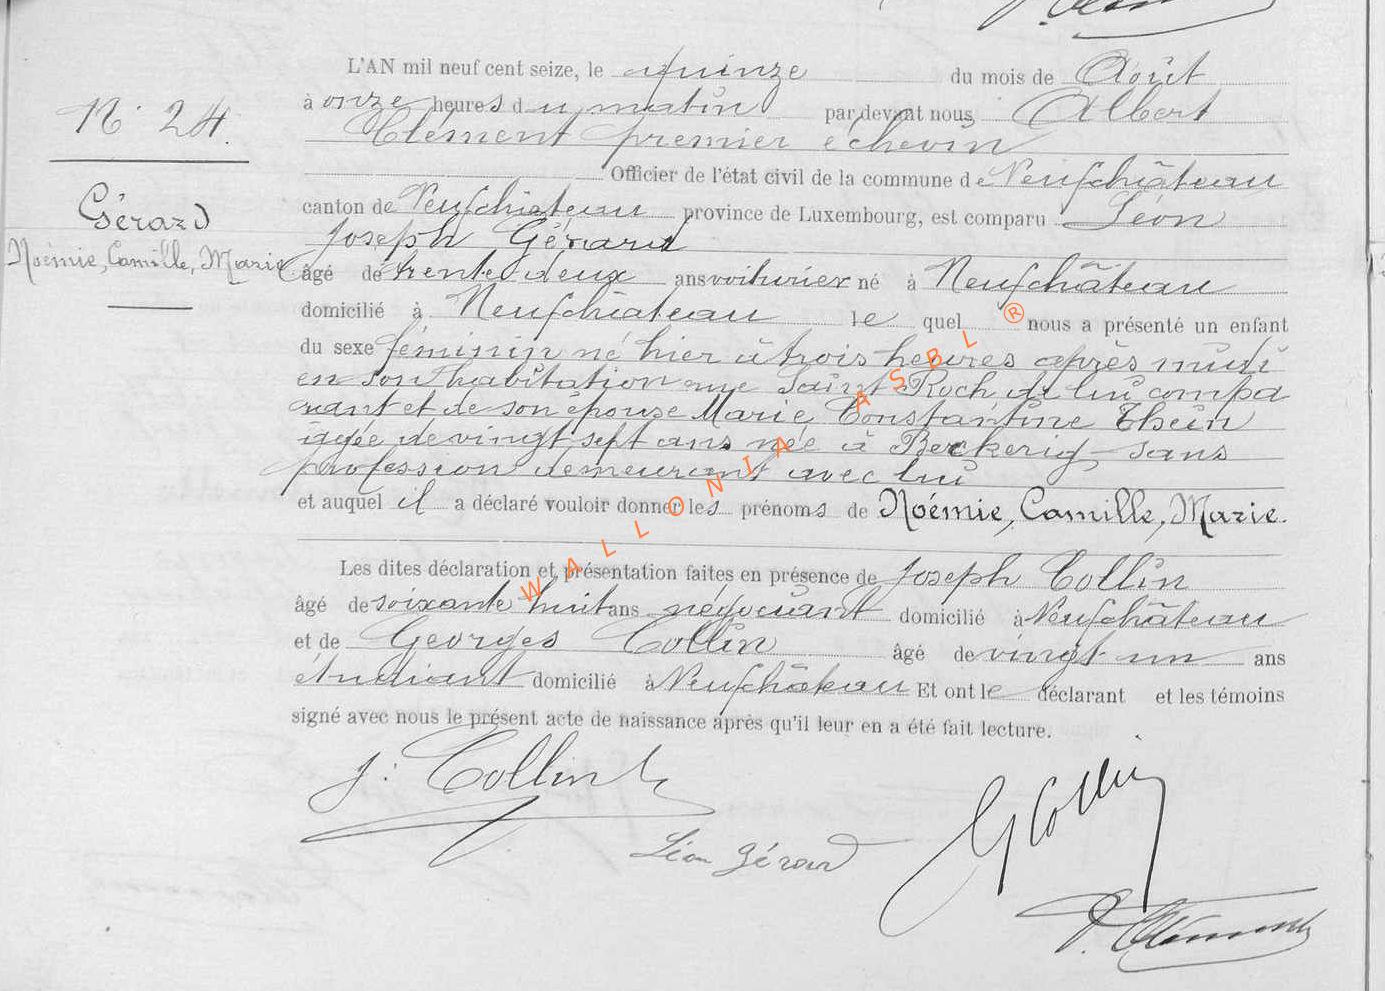 N° 24.
Gérard
Noémie, Camille, Marie
L'AN mil neuf cent seize, le quinze du mois de Août
à onze heures du matin par devant nous, Albert
Clément premier échevin
Officier de l'état civil de la commune de Neufchâteau
canton de Neufchâteau province de Luxembourg, est comparu Léon
Joseph Gérard
âgé de trente deux ans voiturier né à Neufchâteau
domicilié à Neufchateau le quel nous a présenté un enfant
du sexe féminin né hier à trois heures après midi
en son habitation rue Saint Roch de lui compa
rant et de son épouse Marie Constantine Thein
âgée de vingt sept ans née à Beckerig sans
profession demeurant avec lui
et auquel il a déclaré vouloir donner les prénoms de Noémie, Camille, Marie.
Les dites déclaration et présentation faites en présence de Joseph Collin
âgé de soixante huit ans négociant domicilié à Neufchâteau
et de Georges Collin âgé de vingt un ans
étudiant domicilié à Neufchâteau Et ont le déclarant et les témoins
signé avec nous le présent acte de naissance après qu'il leur en a été fait lecture.
J. Collin
G Collin
Léon Gérard
Clément
WALLONIA ASBL ®